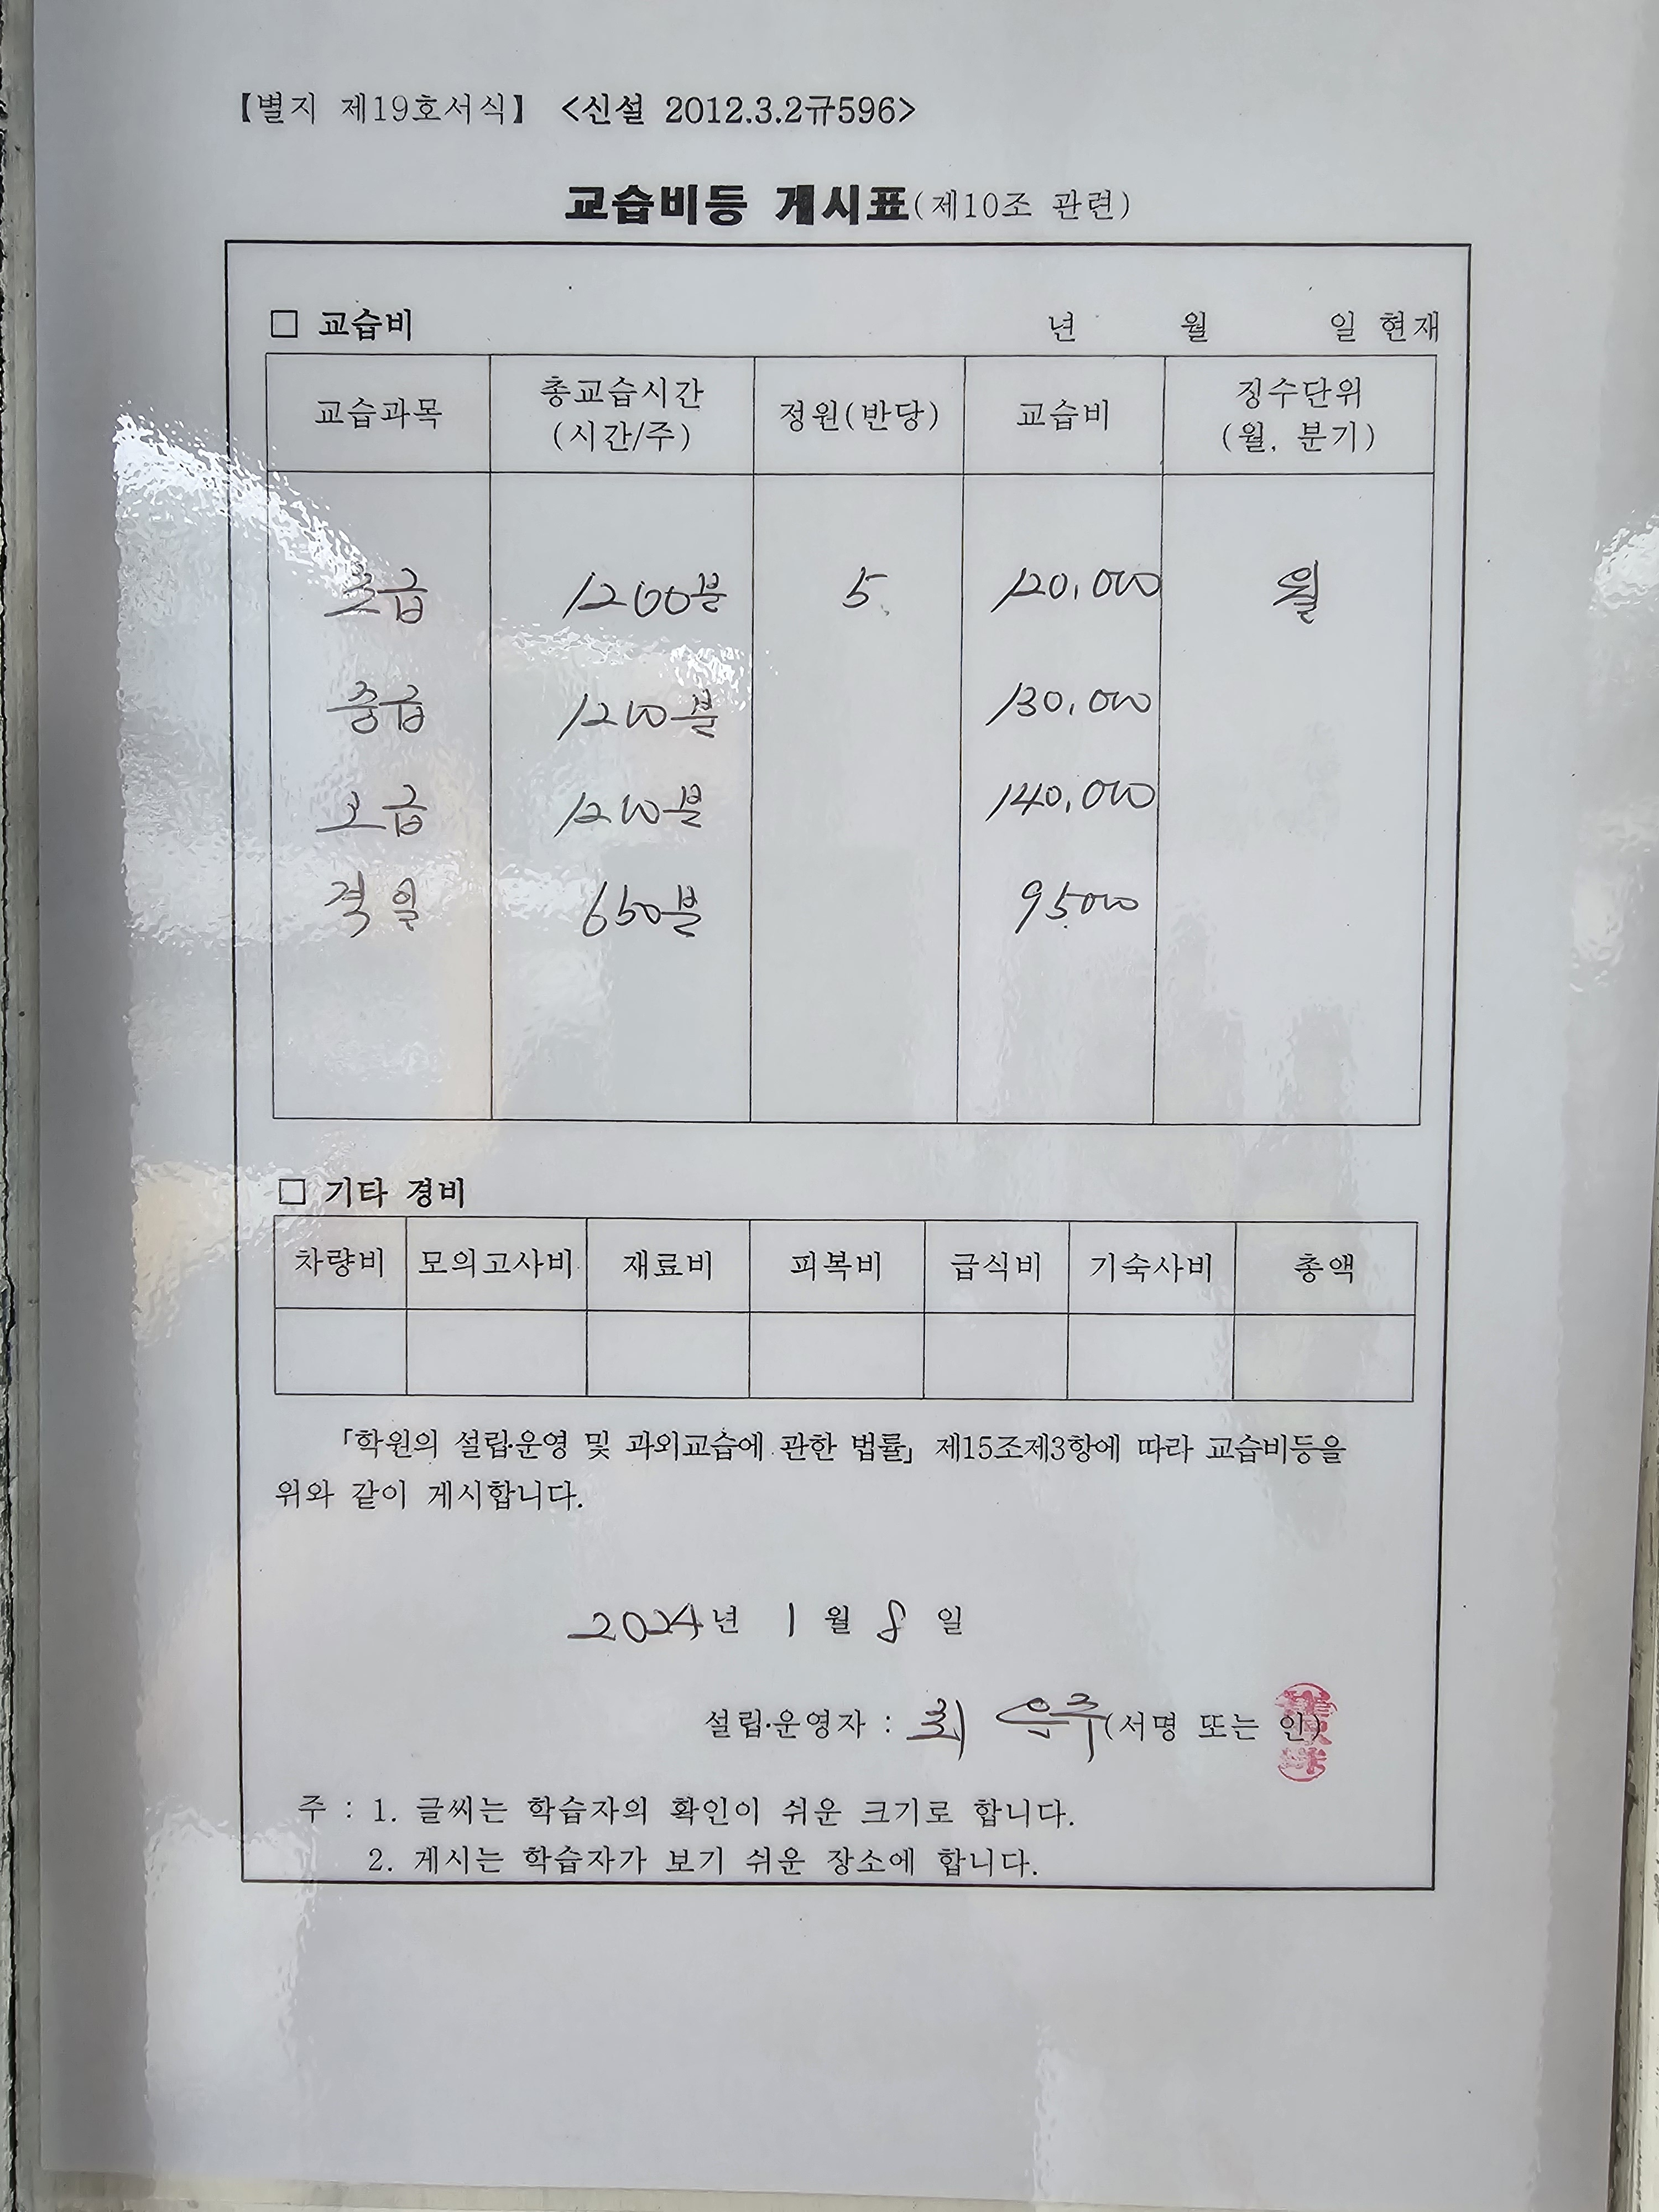 【별지 제19호서식】 <신설 2012.3.2규596>
교습비등 게시표(제10조 관련)
□ 교습비 년 월 일 현재
교습과목 총교습시간 (시간/주) 정원(반당) 교습비 징수단위 (월, 분기)
초급 1200분 5 120,000 월
중급 1200분 130,000
고급 1200분 140,000
격일 650분 95000
□ 기타 경비
차량비 모의고사비 재료비 피복비 급식비 기숙사비 총액
「학원의 설립·운영 및 과외교습에 관한 법률」 제15조제3항에 따라 교습비등을
위와 같이 게시합니다.
2024년 1월 8일
설립·운영자 : 최 은주 (서명 또는 인)
주 : 1. 글씨는 학습자의 확인이 쉬운 크기로 합니다.
2. 게시는 학습자가 보기 쉬운 장소에 합니다.